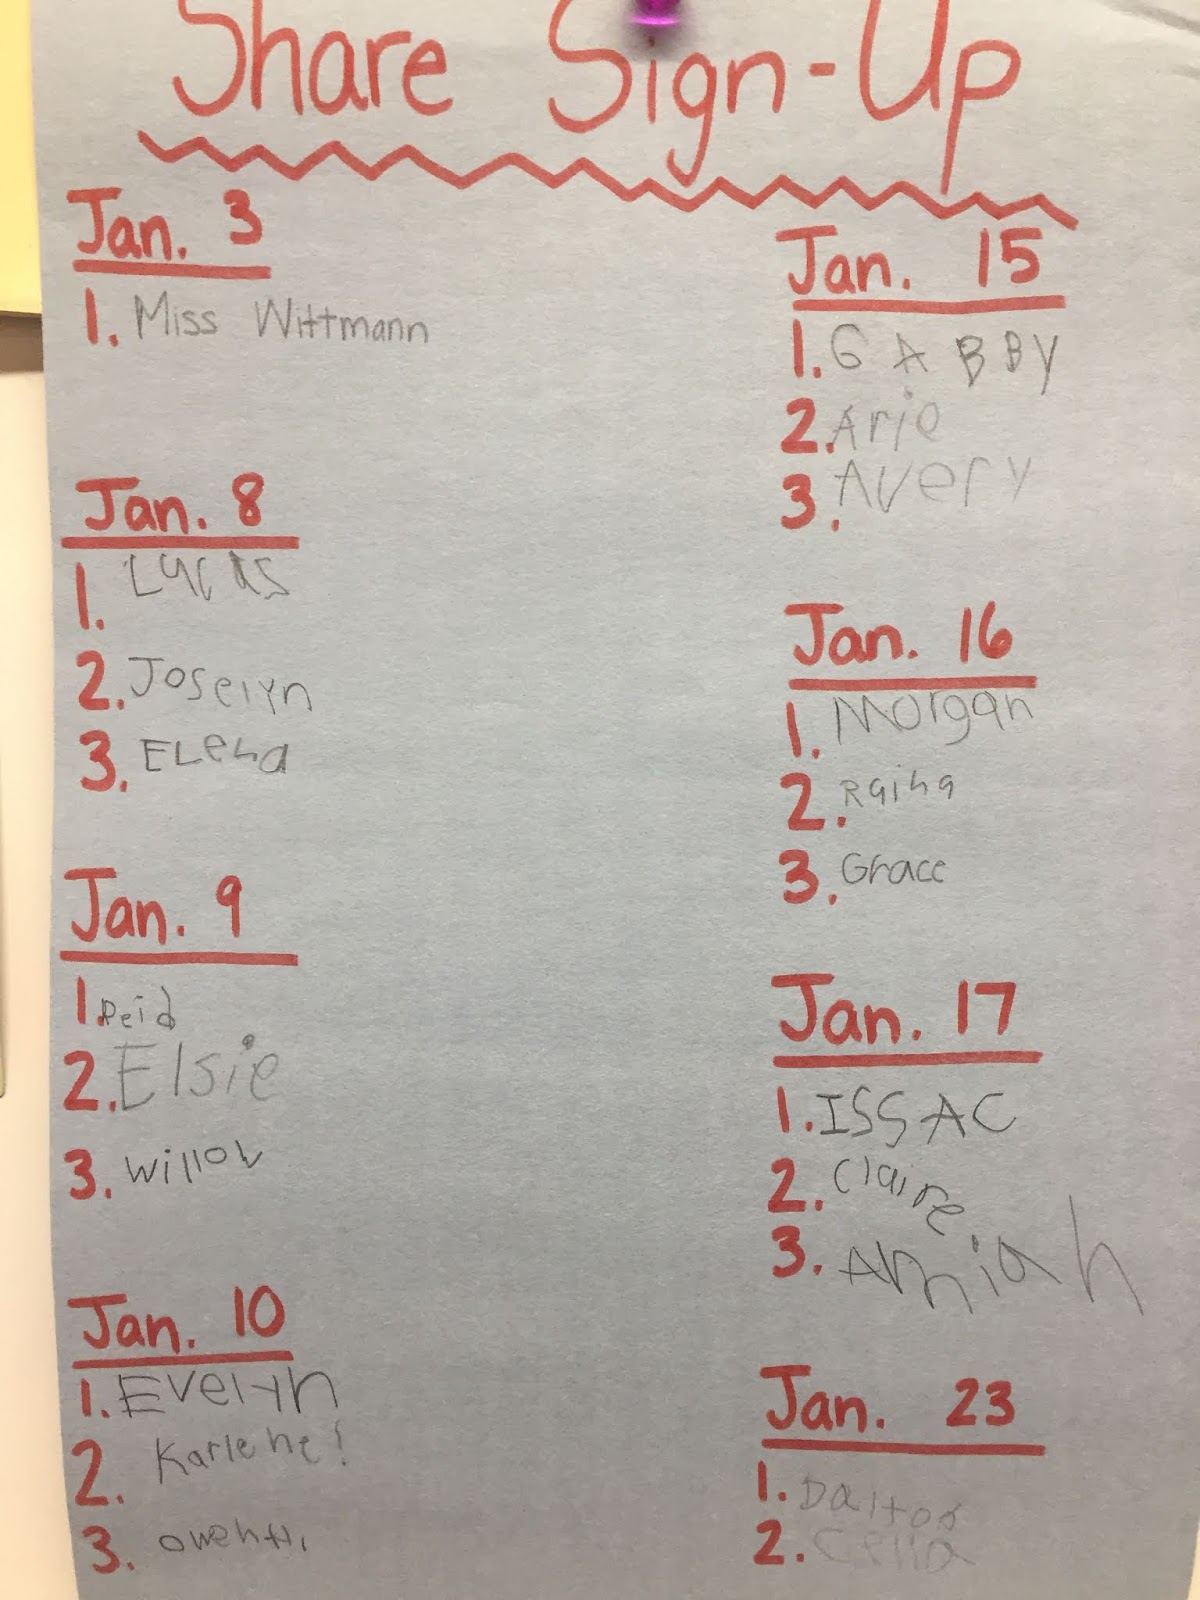 Share Sign-Up
Jan. 3
1. Miss Wittmann
Jan. 8
1. Lucas
2. Joselyn
3. ELena
Jan. 9
1. Reid
2. Elsie
3. Willow
Jan. 10
1. Evelyn
2. Karlene!
3. owen H.
Jan. 15
1. GABBY
2. Arie
3. Avery
Jan. 16
1. Morgan
2. Raina
3. Grace
Jan. 17
1. ISSAC
2. Claire
3. Amiah
Jan. 23
1. Dalton
2. Celia